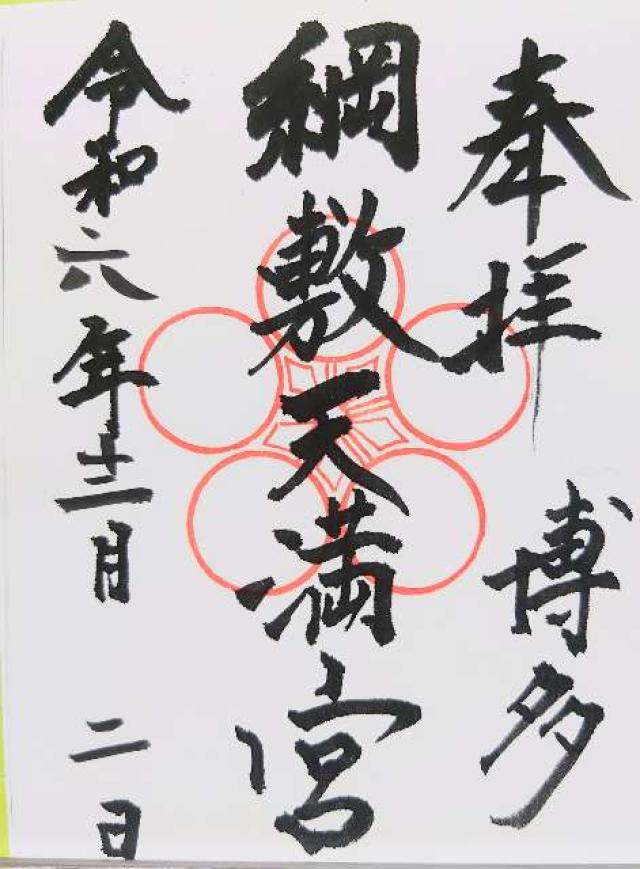 奉拝 博多
綱敷天満宮
令和六年十二月 二日